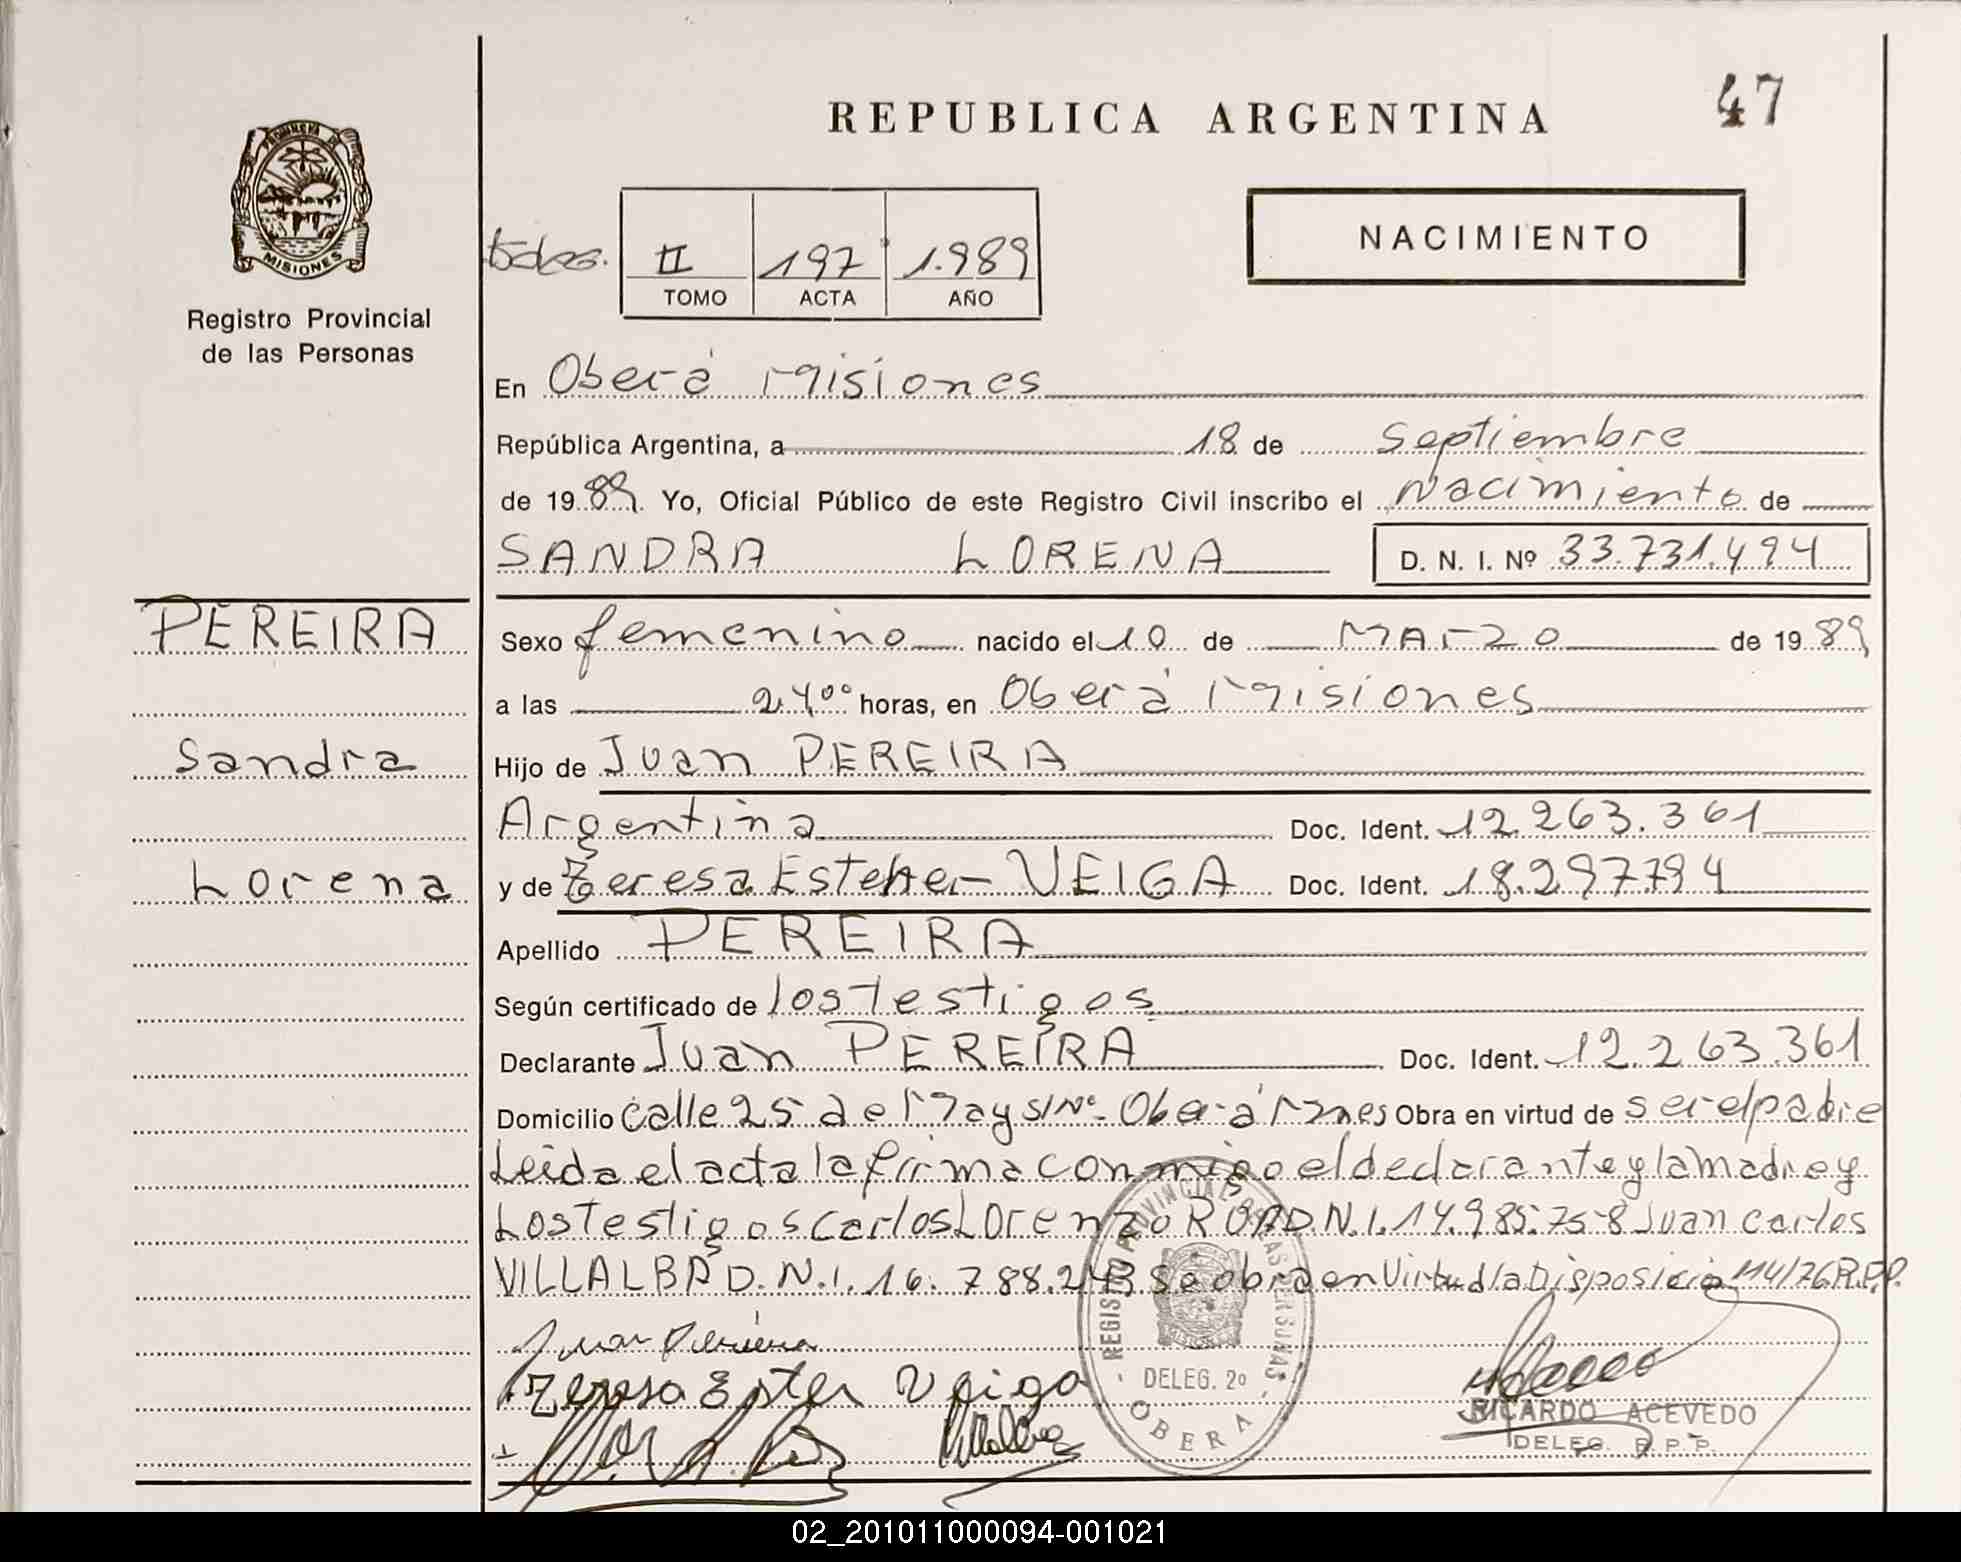 47
REPUBLICA ARGENTINA
PROVINCIA DE
MISIONES
Registro Provincial
de las Personas
NACIMIENTO
II 197 1.989
TOMO ACTA AÑO
En Oberá Misiones
República Argentina, a 18 de Septiembre
de 1989. Yo, Oficial Público de este Registro Civil inscribo el Nacimiento de
SANDRA LORENA D. N. I. Nº 33.731.494
PEREIRA
Sandra
Lorena
Sexo femenino nacido el 10 de MArzo de 1989
a las 24,00 horas, en Oberá Misiones
Hijo de Juan PEREIRA
Argentina Doc. Ident. 12.263.361
y de Teresa Esteher VEIGA Doc. Ident. 18.297794
Apellido PEREIRA
Según certificado de los testigos
Declarante Juan PEREIRA Doc. Ident. 12.263.361
Domicilio Calle 25 de May S/Nº- Oberá Mnes Obra en virtud de ser el padre
Leida el acta la firma conmigo el declarante y la madre y
Los testigos Carlos Lorenzo ROA D.N.I. 14.985.758 Juan Carlos
VILLALBA D.N.I. 16.788.243 Se obra en Virtud la Disposicio 114/76 R.P.P.
Juan Pereira
Teresa Ester Veiga
Villalba
REGISTRO PROVINCIAL DE LAS PERSONAS
MISIONES
DELEG. 2º
OBERA
RICARDO ACEVEDO
DELEG. R. P. P.
02_201011000094-001021